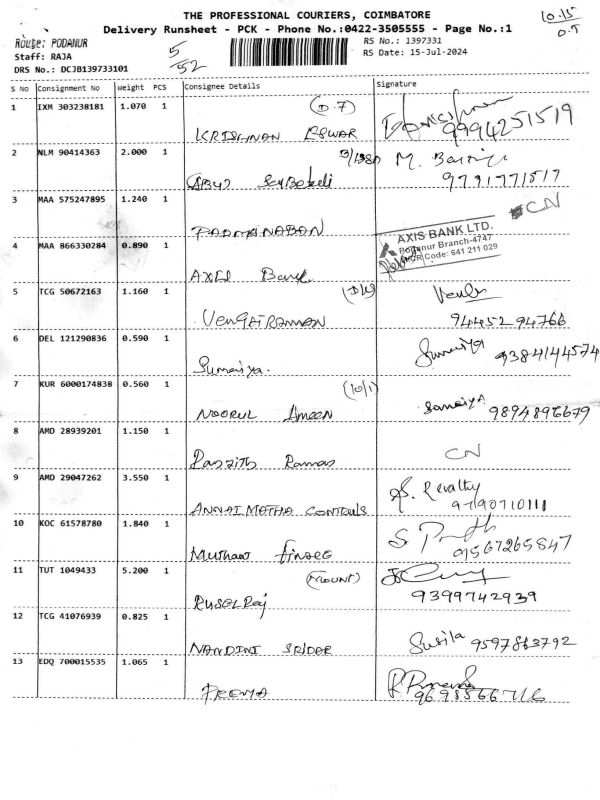 THE PROFESSIONAL COURIERS, COIMBATORE
Delivery Runsheet - PCK - Phone No.:0422-3505555 - Page No.:1
10.15
O.T
Route: PODANUR
RS No.: 1397331
Staff: RAJA
5/52
RS Date: 15-Jul-2024
DRS No.: DCJB139733101
S No Consignment No Weight PCS Consignee Details Signature
1 IXM 303238181 1.070 1 (D.7)
KRISHNAN ESWAR 9994251519
2 NLM 90414363 2.000 1 M.
9791771517
3 MAA 575247895 1.240 1 CN
PADMANABAN
4 MAA 866330284 0.890 1 AXIS BANK LTD.
Podanur Branch-4747
Code: 641 211 029
AXIS Bank
5 TCG 50672163 1.160 1
VENGATRAMAN 9445294766
6 DEL 121290836 0.590 1
Sumaiya. Sumaiya 9384144574
7 KUR 6000174838 0.560 1 (10/1)
NOORUL AMEEN Samaiya 9894896679
8 AMD 28939201 1.150 1 CN
9 AMD 29047262 3.550 1
ANNAI MATHA CONTROLS 9790710111
10 KOC 61578780 1.840 1 S
9567265847
11 TUT 1049433 5.200 1
9399742939
12 TCG 41076939 0.825 1
NANDINI SRIDER Susila 9597863792
13 EDQ 700015535 1.065 1
PREMA